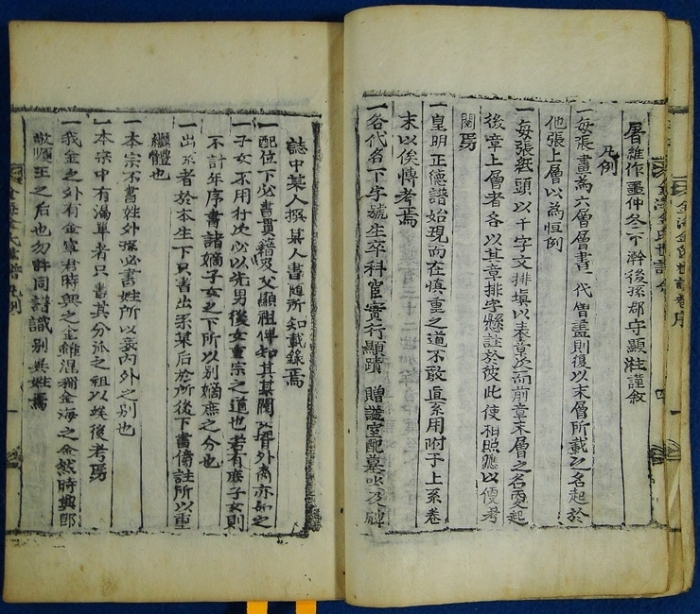 屠維作噩仲冬下澣後孫郡守顯柱謹敘
凡例
一每張畫為六層層書一代僧盡則復以末層所載之名起於
他張上層以為恒例
一每張紙頭以千字文排塡以表章次而前章末層之名更起
後章上層者各以其章排字懸註於彼此使相照應以便考
閱焉
一皇明正德譜始現而在慎重之道不敢直系用附于上系卷
末以俟博考焉
一各代名下字號生卒科宦實行顯蹟 贈諡室配墓坐及碑
誌中某人撰某人書隨所知載錄焉
一配位下必書貫籍及父顯祖俾知其某閥 外裔亦如之
一子女不用行次必以先男後女重宗之道也若有庶子女則
不計年序書諸嫡子女之下所以別嫡庶之分也
一出系者於本生下只書出系某后於所後下書傍註所以重
繼體也
一本宗不書姓外孫必書姓所以表內外之別也
一本宗中有漏單者只書其分派之祖以俟後考焉
一我金之外有金寧君時興之金雖混稱金海之金然時興即
敬順王之后也勿許同譜識別其姓焉